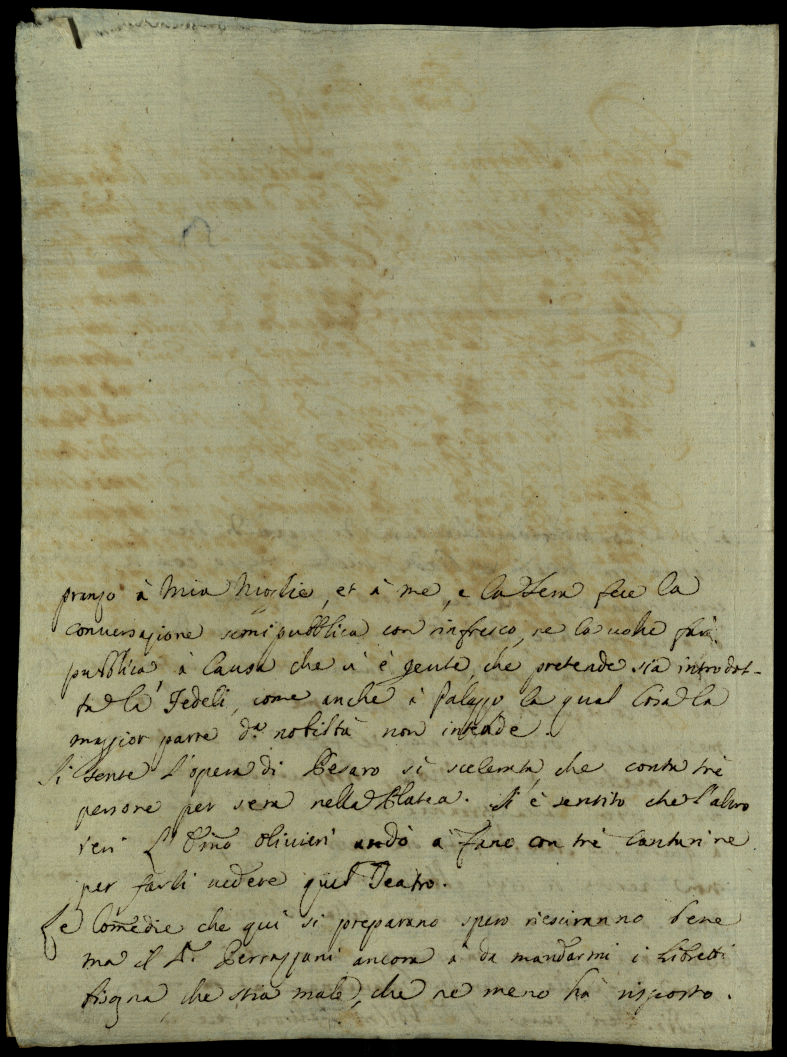 pranzo à Mia Moglie, et à me, e la Sera fece la
conversazione semipubblica con rinfresco, ne la volse fare
pubblica, à causa che vi è gente, che pretende sia introdot-
ta la Fedeli, come anche à Palazzo la qual Cosa la
maggior parte d.a nobiltà non intende.
Si sente l'opera di Pesaro si scelerata, che conta trè
persone per sera nella Platea. Si è sentito che l'altro
ieri L' Emo Olivieri andò a Fano con trè Canturine
per farli vedere quel Teatro.
Le Comedie che quì si preparano spero riesciranno bene
ma il S.r Perrazzani ancora à da mandarmi i Libretti
bisogna, che stia male, che ne meno hà risposto.